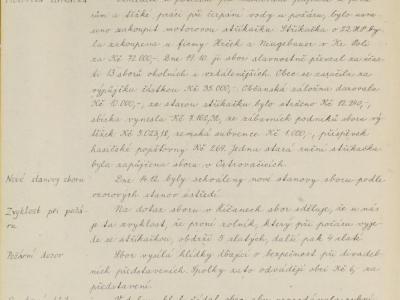 rům a těžké práci při čerpání vody u požáru, bylo usne-
seno zakoupit motorovou stříkačku. Stříkačka o 22 HP by-
la zakoupena u firmy Hrček a Neugebauer v Kr. Poli
za Kč 72.000,-. Dne 19.10. ji sbor slavnostně převzal za účas-
ti 13 sborů okolních i vzdálenějších. Obec se zaručila za
výpůjčku částkou Kč 35.000,-. Občanská záložna darovala
Kč 10.000,-, za starou stříkačku bylo strženo Kč 12.240,-,
sbírka vynesla Kč 7.162,30, ze zábavních podniků sboru vý-
těžek Kč 3.023,18, zemská subvence Kč 1.000,-, příspěvek
hasičské pojišťovny Kč 269. Jedna stará ruční stříkačka
byla zapůjčena sboru v Ostrovačicích.
Nové stanovy sboru Dne 14.12. byly schváleny nové stanovy sboru podle
vzorových stanov ústředí.
Zvyklost při požá- Na dotaz sboru v Říčanech sbor sděluje, že u nás
ru je ta zvyklost, že první rolník, který při požáru vyje-
de se stříkačkou, obdrží 5 zlatých, další pak 4 zlaté.
Požární dozor Sbor vysílá hlídky dbající o bezpečnost při divadel-
ních představeních. Spolky zato odvádějí obci Kč 6,- za
představení.